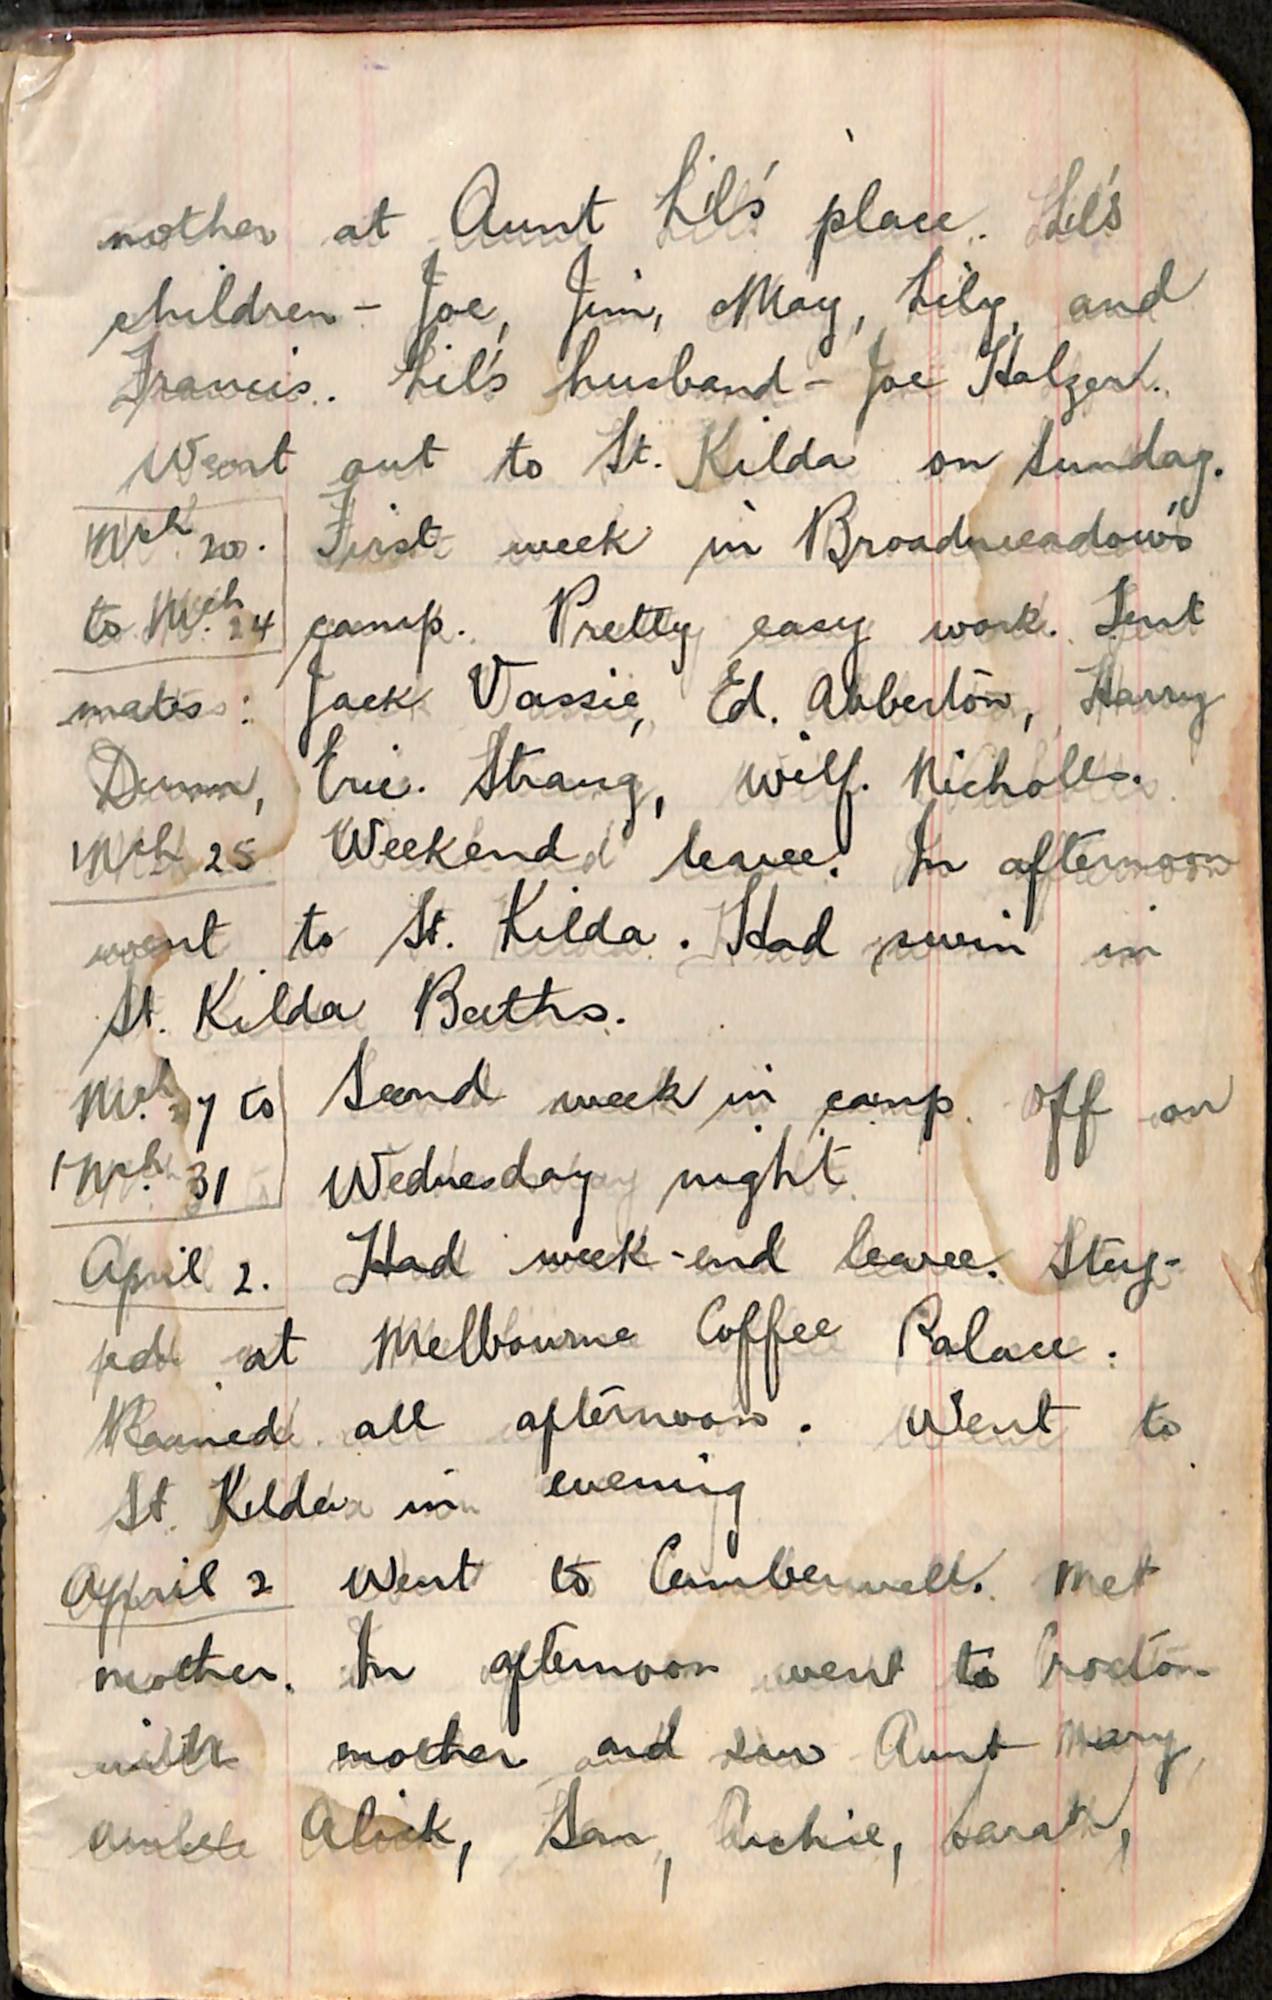 mother at Aunt Lil's place. Lil's
children - Joe, Jim, May, Lily, and
Francis. Lil's husband - Joe Holzer.
Went out to St. Kilda on Sunday.
Mch 20. First week in Broadmeadows
to Mch. 24 camp. Pretty easy work. Tent
mates: Jack Vassie, Ed. Abberton, Harry
Dunn, Eric. Strang, Wilf. Nicholls.
Mch 25 Weekend leave. In afternoon
went to St. Kilda. Had swim in
St. Kilda Baths.
Mch. 27 to Second week in camp. Off on
Mch. 31 Wednesday night.
April 2. Had week-end leave. Stop-
ped at Melbourne Coffee Palace.
Rained all afternoon. Went to
St. Kilda in evening
April 2 Went to Camberwell. Met
mother. In afternoon went to Croxton
with mother and saw Aunt Mary,
Uncle Alick, Sam, Archie, Sarah,